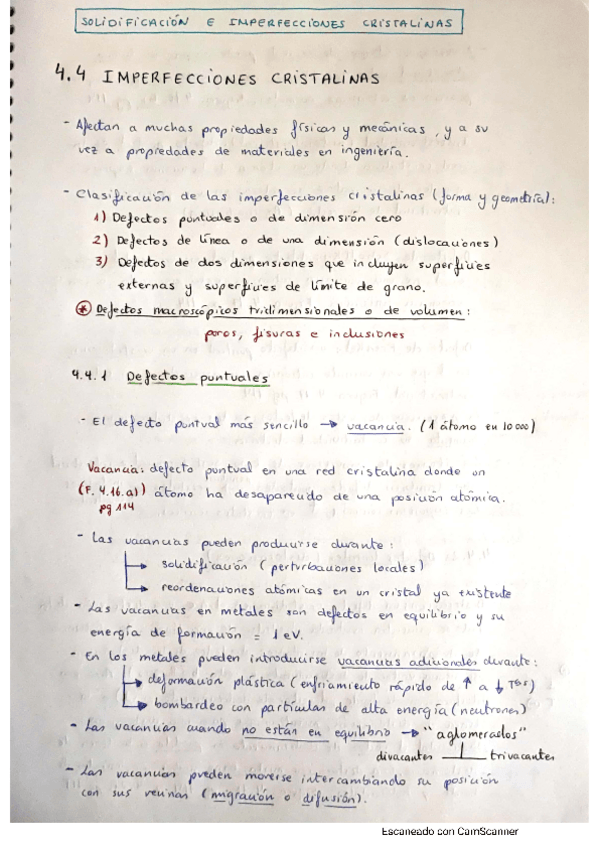 SOLIDIFICACIÓN E IMPERFECCIONES CRISTALINAS
4.4 IMPERFECCIONES CRISTALINAS
- Afectan a muchas propiedades físicas y mecánicas, y a su
vez a propiedades de materiales en ingeniería.
- Clasificación de las imperfecciones cristalinas (forma y geometría):
1) Defectos puntuales o de dimensión cero
2) Defectos de línea o de una dimensión (dislocaciones)
3) Defectos de dos dimensiones que incluyen superficies
externas y superficies de límite de grano.
* Defectos macroscópicos tridimensionales o de volumen:
poros, fisuras e inclusiones
4.4.1 Defectos puntuales
- El defecto puntual más sencillo → vacancia. (1 átomo en 10 000)
Vacancia: defecto puntual en una red cristalina donde un
(F. 4.16.a)) átomo ha desaparecido de una posición atómica.
pg 114
- Las vacancias pueden producirse durante:
→ solidificación (perturbaciones locales)
→ reordenaciones atómicas en un cristal ya existente
- Las vacancias en metales son defectos en equilibrio y su
energía de formación = 1 eV.
- En los metales pueden introducirse vacancias adicionales durante:
→ deformación plástica (enfriamiento rápido de ↑ a ↓ Tas)
→ bombardeo con partículas de alta energía (neutrones)
- Las vacancias cuando no están en equilibrio → "aglomerados"
divacantes trivacantes
- Las vacancias pueden moverse intercambiando su posición
con sus vecinas (migración o difusión).
Escaneado con CamScanner